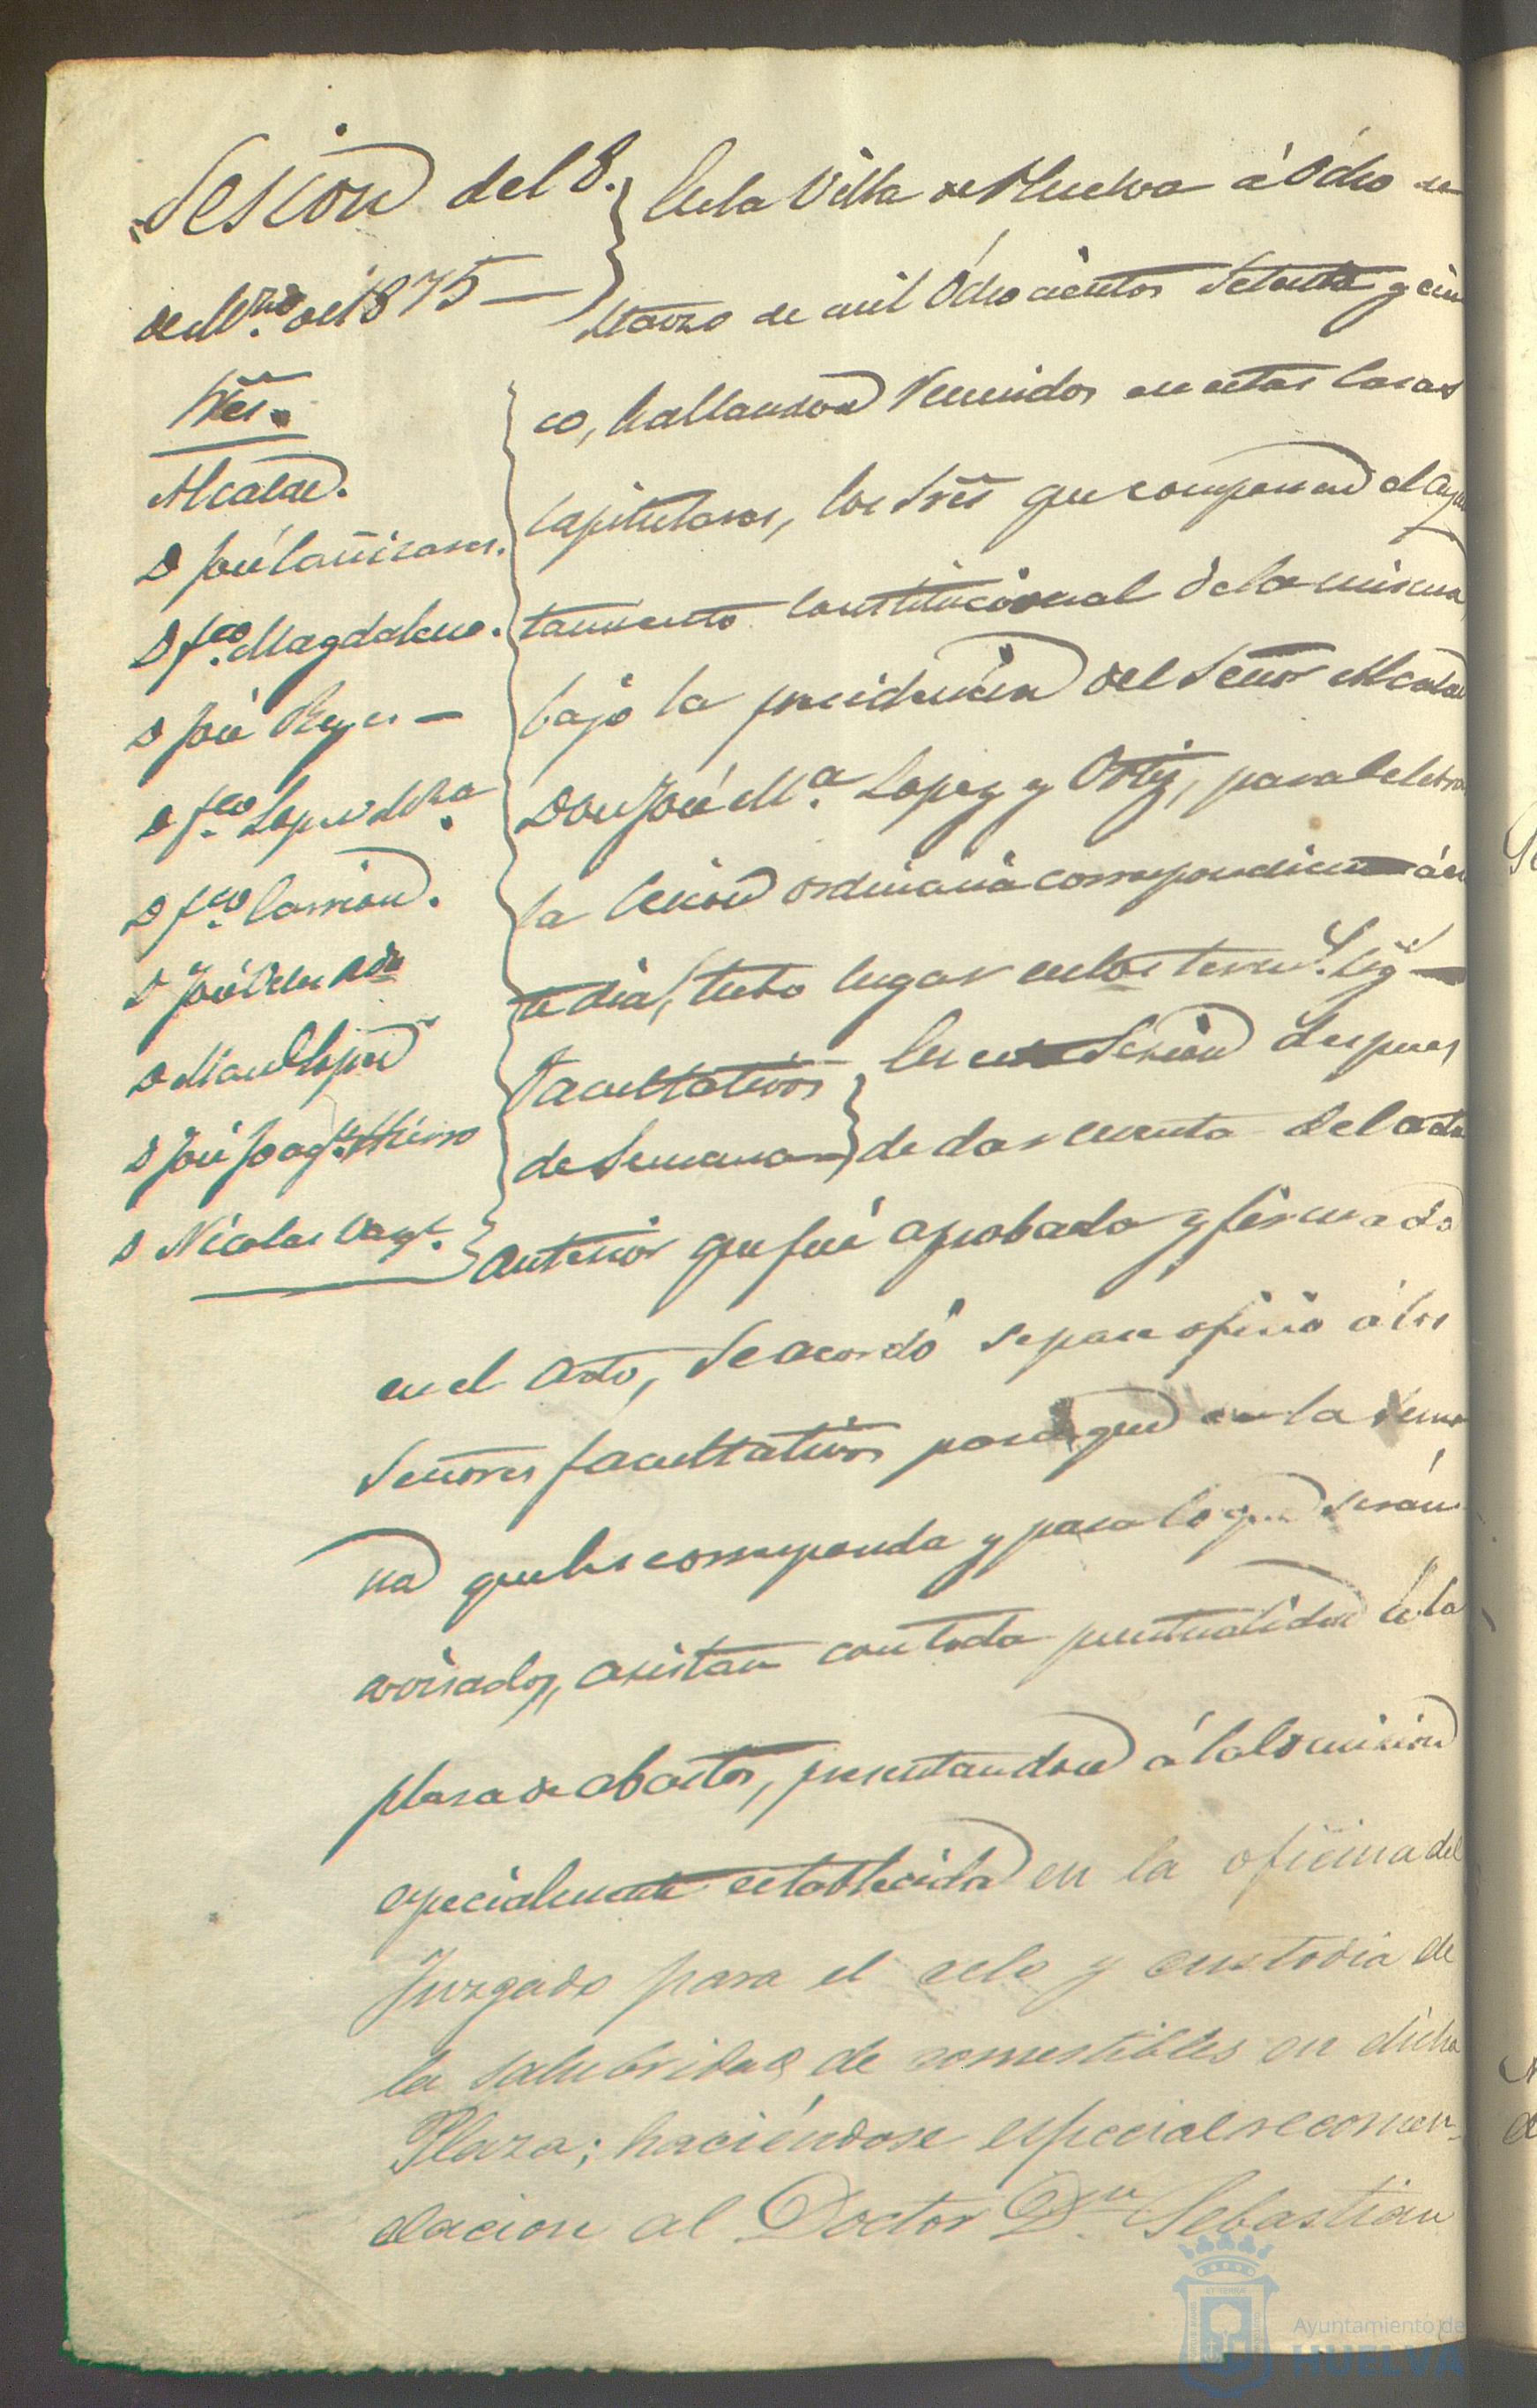 Sesion del 8.
de Mzo. de 1875 —
Sres.
Alcalde.
D José Cañizares.
D Fco. Magdaleno.
D José Reyes —
D Fco. Lopez
D Fco. Carrion.
D José
D Manl. Lopez
D José Joaqn. Hierro
D Nicolas Vazqz.
En la Villa de Huelva á Ocho de
Marzo de mil Ochocientos Setenta y cin
co, hallandose reunidos en estas Casas
Capitulares, los Sres que componen el Ayun
tamiento Constitucional de la misma
bajo la presidencia del Señor Alcalde
Don José Ma. Lopez y Ortiz, para celebrar
la Sesion ordinaria correspondiente á es
te dia, tubo lugar en los termos. sigs
Facultativos
de Semana
En esta Sesion despues
de dar cuenta del acta
anterior que fué aprobada y firmada
en el acto, Se acordó se pase oficio á los
Señores facultativos para que en la Sema
na que les corresponda y para lo que serán
avisados, asistan con toda puntualidad á la
plaza de abastos, presentandose á la Comision
especialmente establecida en la oficina del
Juzgado para el celo y custodia de
la salubridad de comestibles en dicha
Plaza; haciéndose especial recomen-
dacion al Doctor Dn. Sebastian
Ayuntamiento de
HUELVA